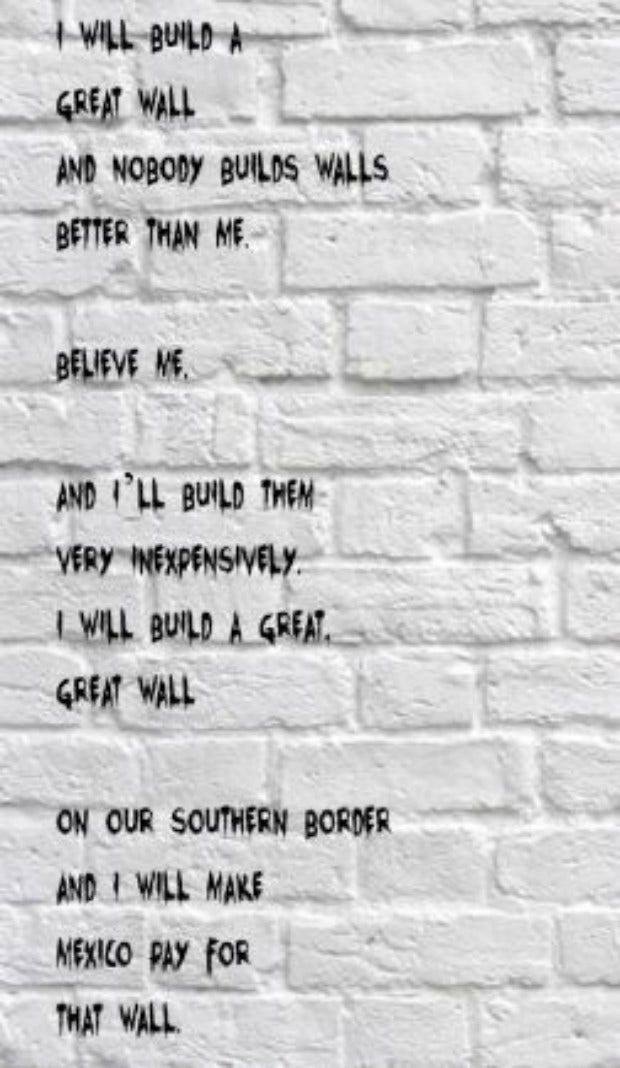 I WILL BUILD A
GREAT WALL
AND NOBODY BUILDS WALLS
BETTER THAN ME.
BELIEVE ME.
AND I'LL BUILD THEM
VERY INEXPENSIVELY.
I WILL BUILD A GREAT,
GREAT WALL
ON OUR SOUTHERN BORDER
AND I WILL MAKE
MEXICO PAY FOR
THAT WALL.